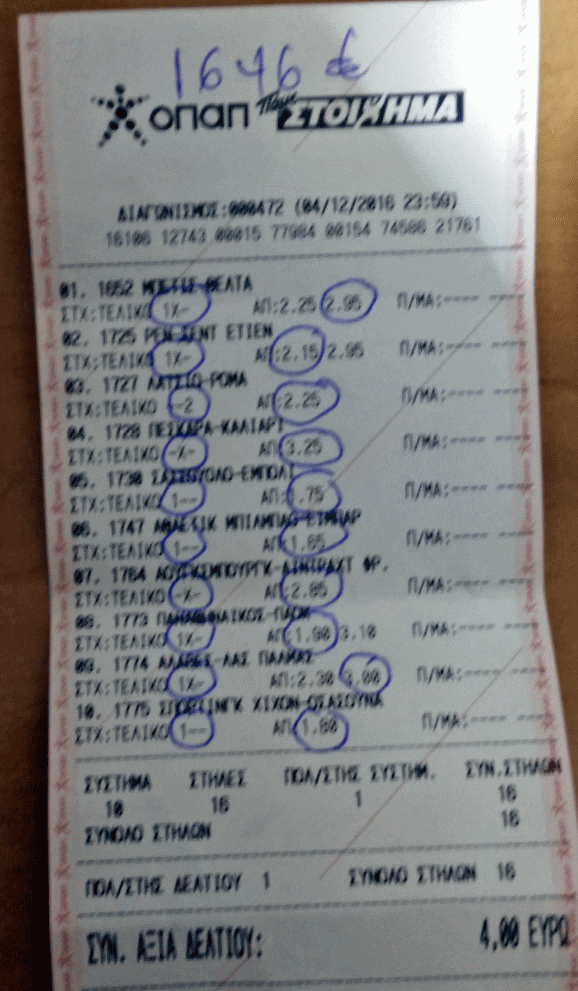 1646 €
ΟΠΑΠ Πάμε ΣΤΟΙΧΗΜΑ
ΔΙΑΓΩΝΙΣΜΟΣ:000472 (04/12/2016 23:59)
16106 12743 00015 77984 00154 74506 21761
01. 1652 ΜΠΕΤΙΣ-ΘΕΛΤΑ
ΣΤΧ:ΤΕΛΙΚΟ 1X- ΑΠ:2.25 2.95 Π/ΜΑ:---- ----
02. 1725 ΡΕΝ-ΣΕΝΤ ΕΤΙΕΝ
ΣΤΧ:ΤΕΛΙΚΟ 1X- ΑΠ:2.15 2.95 Π/ΜΑ:---- ----
03. 1727 ΛΑΤΣΙΟ-ΡΟΜΑ
ΣΤΧ:ΤΕΛΙΚΟ --2 ΑΠ:2.25 Π/ΜΑ:---- ----
04. 1728 ΠΕΣΚΑΡΑ-ΚΑΛΙΑΡΙ
ΣΤΧ:ΤΕΛΙΚΟ -X- ΑΠ:3.25 Π/ΜΑ:---- ----
05. 1730 ΣΑΣΣΟΥΟΛΟ-ΕΜΠΟΛΙ
ΣΤΧ:ΤΕΛΙΚΟ 1-- ΑΠ:1.75 Π/ΜΑ:---- ----
06. 1747 ΑΘΛΕΤΙΚ ΜΠΙΛΜΠΑΟ-ΕΙΜΠΑΡ
ΣΤΧ:ΤΕΛΙΚΟ 1-- ΑΠ:1.65 Π/ΜΑ:---- ----
07. 1764 ΑΟΥΓΚΣΜΠΟΥΡΓΚ-ΑΙΝΤΡΑΧΤ ΦΡ.
ΣΤΧ:ΤΕΛΙΚΟ -X- ΑΠ:2.85 Π/ΜΑ:---- ----
08. 1773 ΠΑΝΑΘΗΝΑΙΚΟΣ-ΠΑΟΚ
ΣΤΧ:ΤΕΛΙΚΟ 1X- ΑΠ:1.90 3.10 Π/ΜΑ:---- ----
09. 1774 ΑΛΑΒΕΣ-ΛΑΣ ΠΑΛΜΑΣ
ΣΤΧ:ΤΕΛΙΚΟ 1X- ΑΠ:2.30 3.00 Π/ΜΑ:---- ----
10. 1775 ΣΠΟΡΤΙΝΓΚ ΧΙΧΟΝ-ΟΣΑΣΟΥΝΑ
ΣΤΧ:ΤΕΛΙΚΟ 1-- ΑΠ:1.80 Π/ΜΑ:---- ----
ΣΥΣΤΗΜΑ ΣΤΗΛΕΣ ΠΟΛ/ΣΤΗΣ ΣΥΣΤΗΜ. ΣΥΝ.ΣΤΗΛΩΝ
10 16 1 16
ΣΥΝΟΛΟ ΣΤΗΛΩΝ 16
ΠΟΛ/ΣΤΗΣ ΔΕΛΤΙΟΥ 1 ΣΥΝΟΛΟ ΣΤΗΛΩΝ 16
ΣΥΝ. ΑΞΙΑ ΔΕΛΤΙΟΥ: 4,00 ΕΥΡΩ